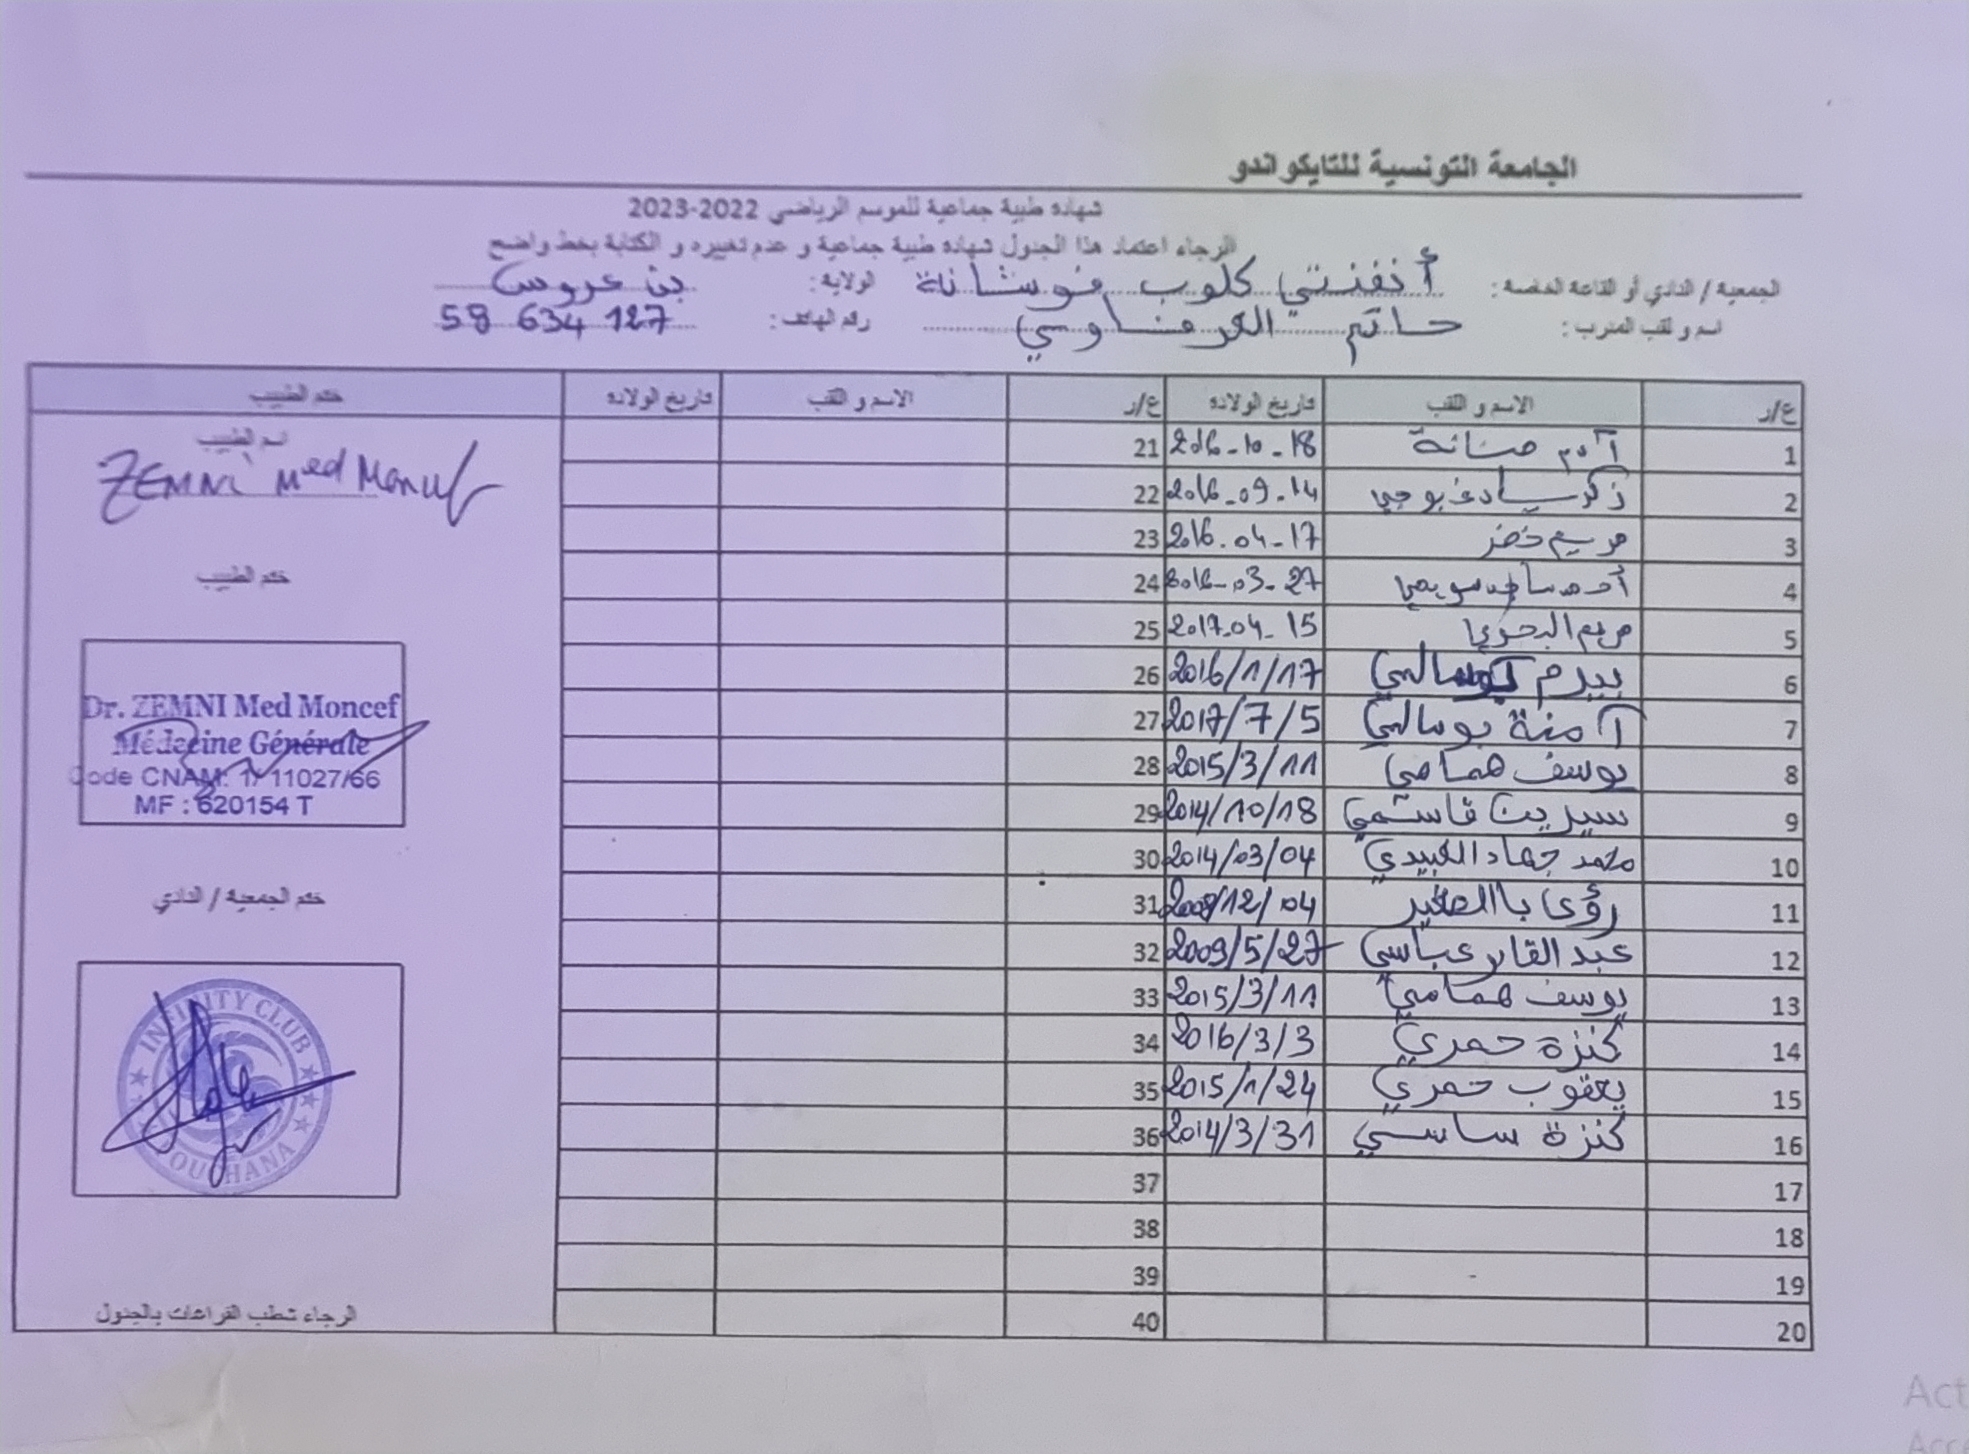 الجامعة التونسية للتايكواندو
شهادة طبية جماعية للموسم الرياضي 2022-2023
الرجاء اعتماد هذا الجدول شهادة طبية جماعية و عدم تغييره و الكتابة بخط واضح
الجمعية / النادي أو القاعة الخاصة: أنفنتي كلوب فوشانة الولاية: بن عروس
اسم و لقب المدرب: حاتم رقم الهاتف: 58 634 127
ع/ر الاسم و اللقب تاريخ الولادة ع/ر الاسم و اللقب تاريخ الولادة ختم الطبيب
1 آدم 2016-10-18 21
2 زكرياء 2016-09-14 22
3 مريم خضر 2016-04-17 23
4 2016-03-27 24
5 مريم البحري 2017-04-15 25
6 بيرم بوسالمي 2016/1/17 26
7 آمنة بوسالمي 2017/7/5 27
8 يوسف همامي 2015/3/11 28
9 سيرين قاسمي 2014/10/18 29
10 محمد جهاد العبيدي 2014/03/04 30
11 رؤى بالصغير 2008/12/04 31
12 عبد القادر عباسي 2009/5/27 32
13 يوسف همامي 2015/3/11 33
14 كنزة حمري 2016/3/3 34
15 يعقوب حمري 2015/1/24 35
16 كنزة ساسي 2014/3/31 36
17 37
18 38
19 39
20 40
اسم الطبيب
ZEMNI Med Moncef
ختم الطبيب
Dr. ZEMNI Med Moncef
Médecine Générale
Code CNAM: 1/ 11027/66
MF : 620154 T
ختم الجمعية / النادي
INFINITY CLUB
الرجاء شطب الفراغات بالجدول
Act